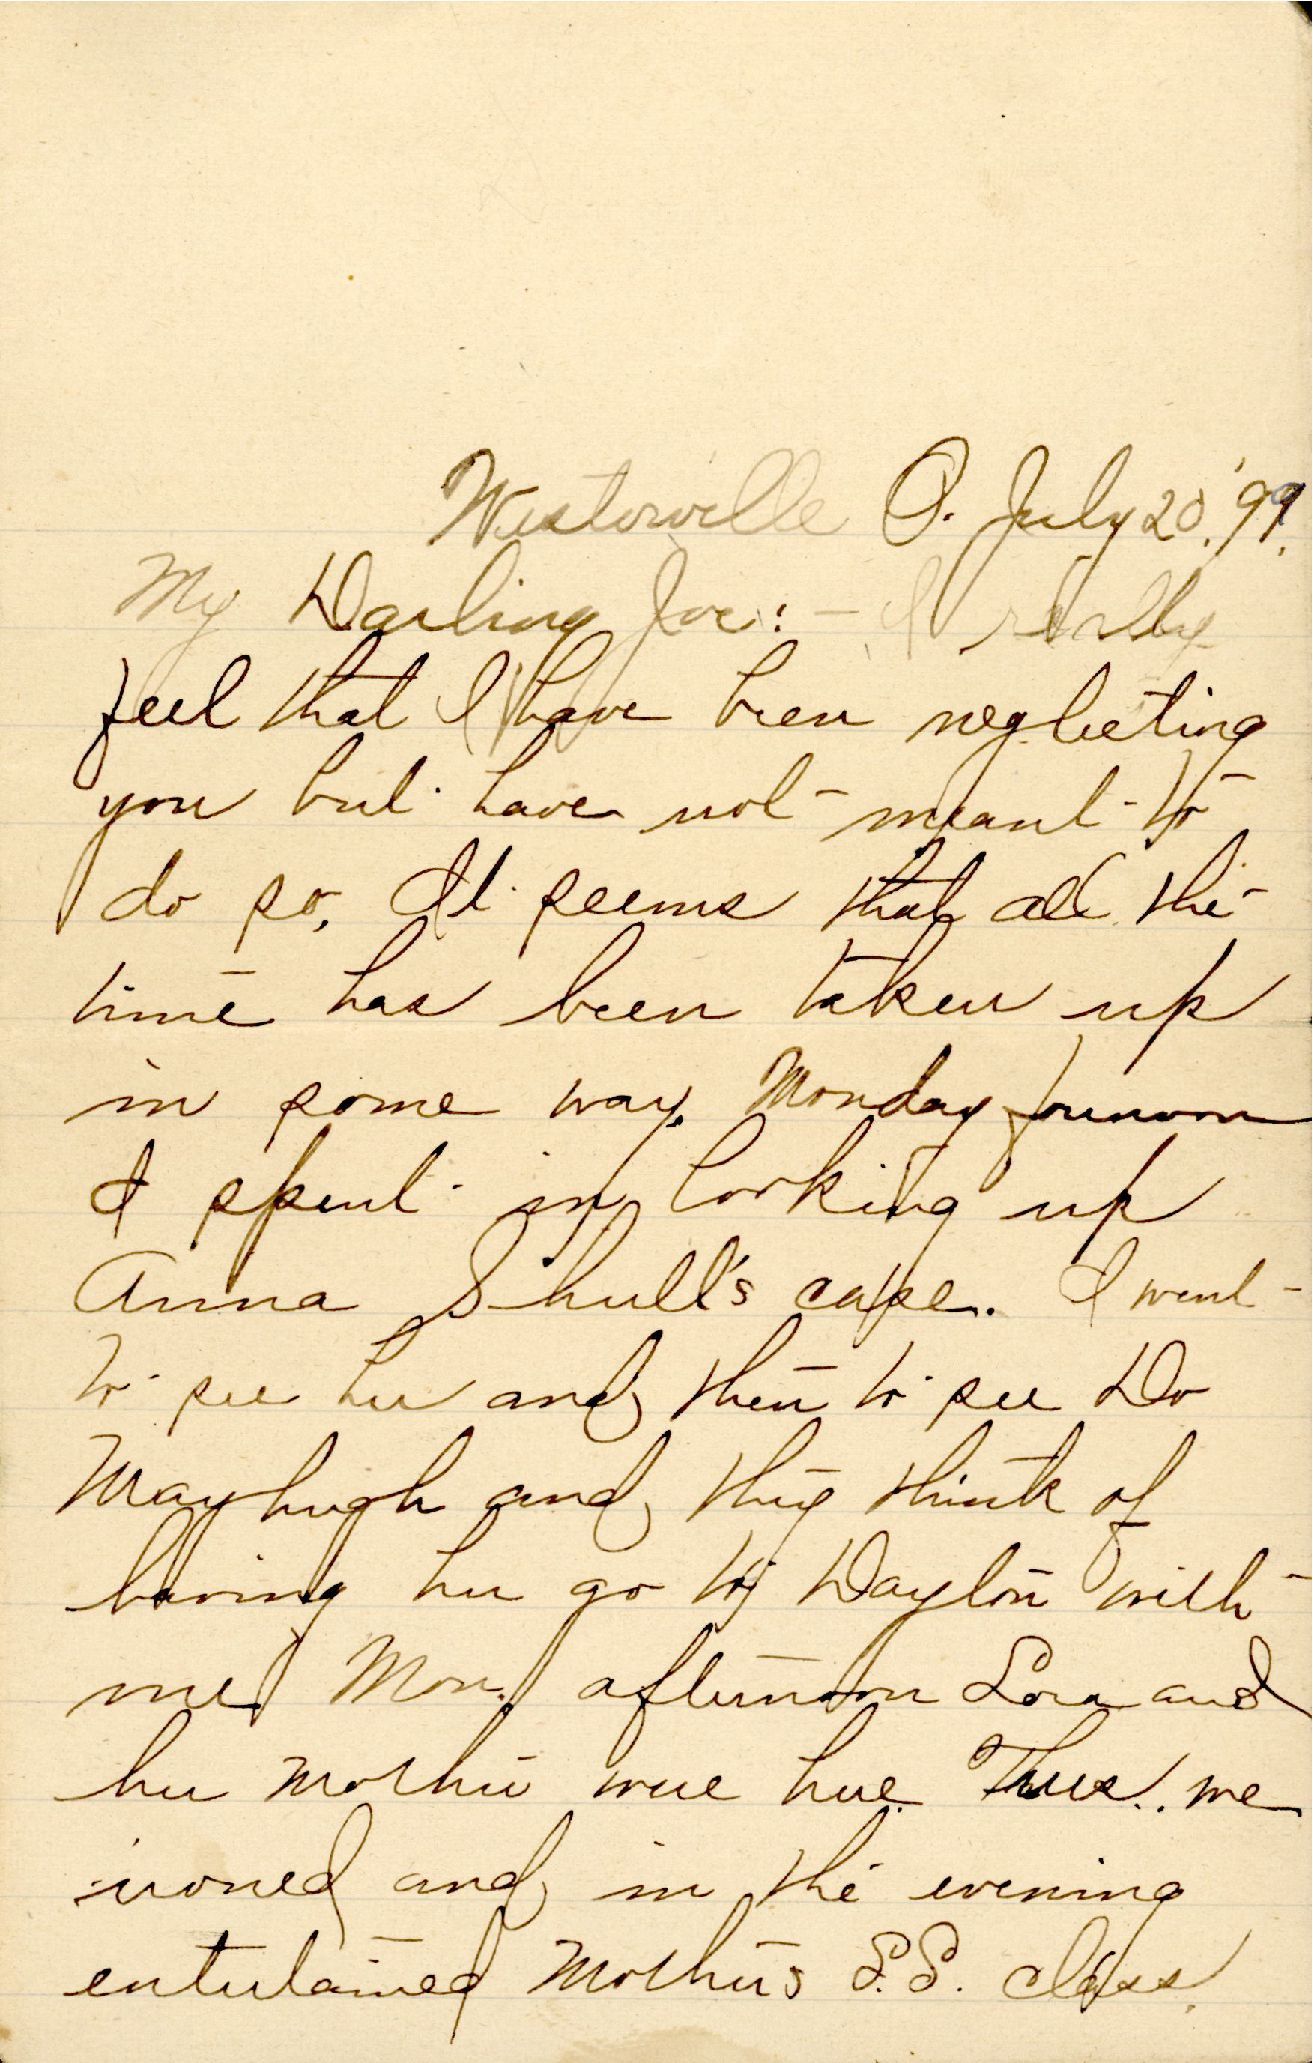 Westerville O. July 20, '99.
My Darling Joe: – I really
feel that I have been neglecting
you but have not meant to
do so. It seems that all the
time has been taken up
in some way. Monday forenoon
I spent in looking up
Anna Shull's case. I went
to see her and then to see Dr
Mayhugh and they think of
having her go to Dayton with
me. Mon. afternoon Lora and
her mother were here. Tues. we
ironed and in the evening
entertained Mother's S.S. class.